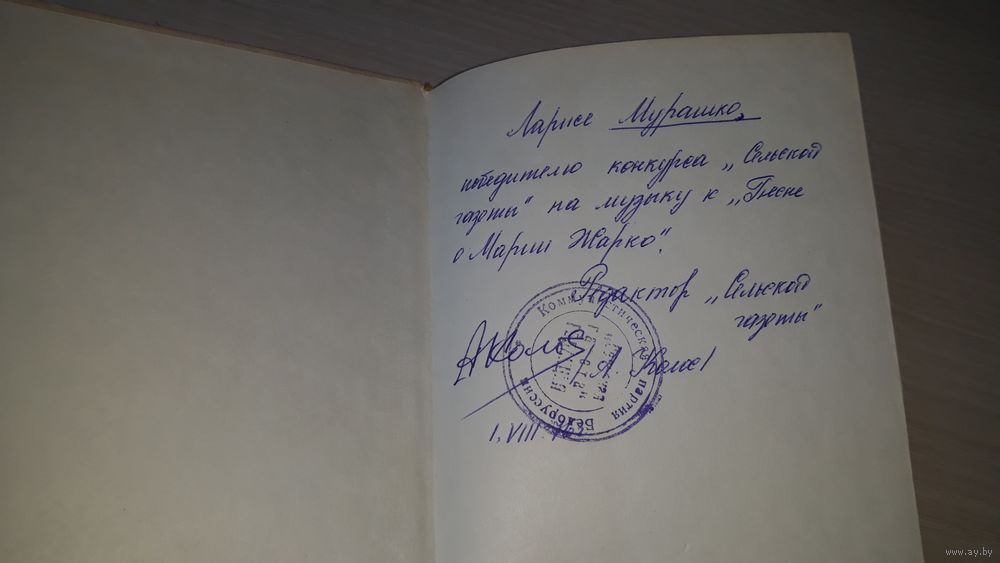 Ларисе Мурашко,
победителю конкурса „Сельской
газеты" на музыку к „Песне
о Марии Жарко".
Редактор „Сельской
газеты"
/А. Колос/
Коммунистическая партия Белоруссии
I. VIII
www.ay.by